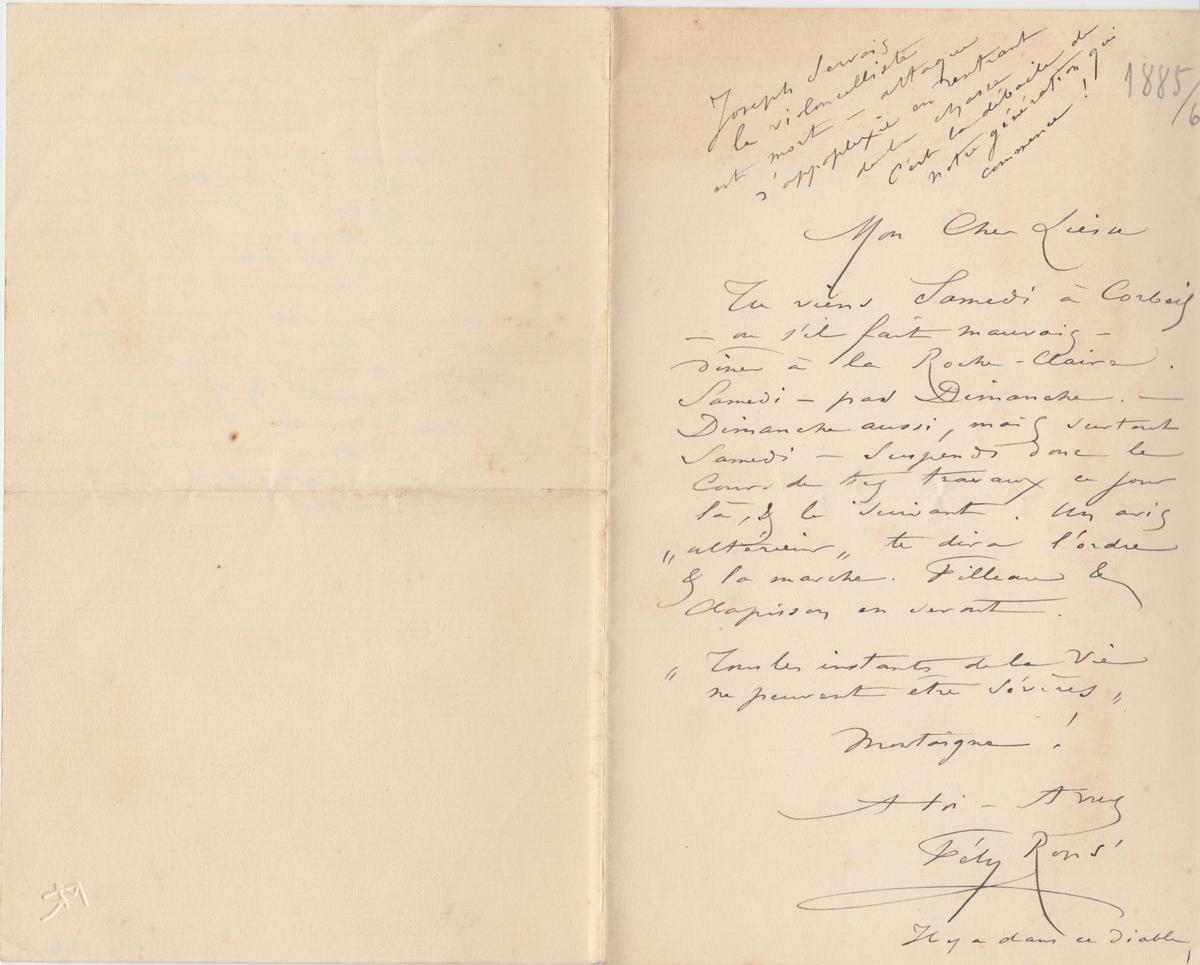 Joseph Servais
le violoncelliste
est mort – attaque
d'appoplexie en rentrant
de la chasse
C'est la débacle de
notre génération qui
commence !
1885/6
Mon Cher Liesse
Tu viens Samedi à Corbeil
– ou s'il fait mauvais –
diner à la Roche-Claire.
Samedi – pas Dimanche. –
Dimanche aussi, mais surtout
Samedi – Suspends donc le
Cours de tes travaux ce jour
là, & le suivant. Un avis
„ ultérieur „ te dira l'ordre
& la marche. Filleau &
Clapisson en seront.
„ Tous les instants de la Vie
ne peuvent être sévères „
Montaigne !
A toi –
Fély Rops
Il y a dans ce Diable